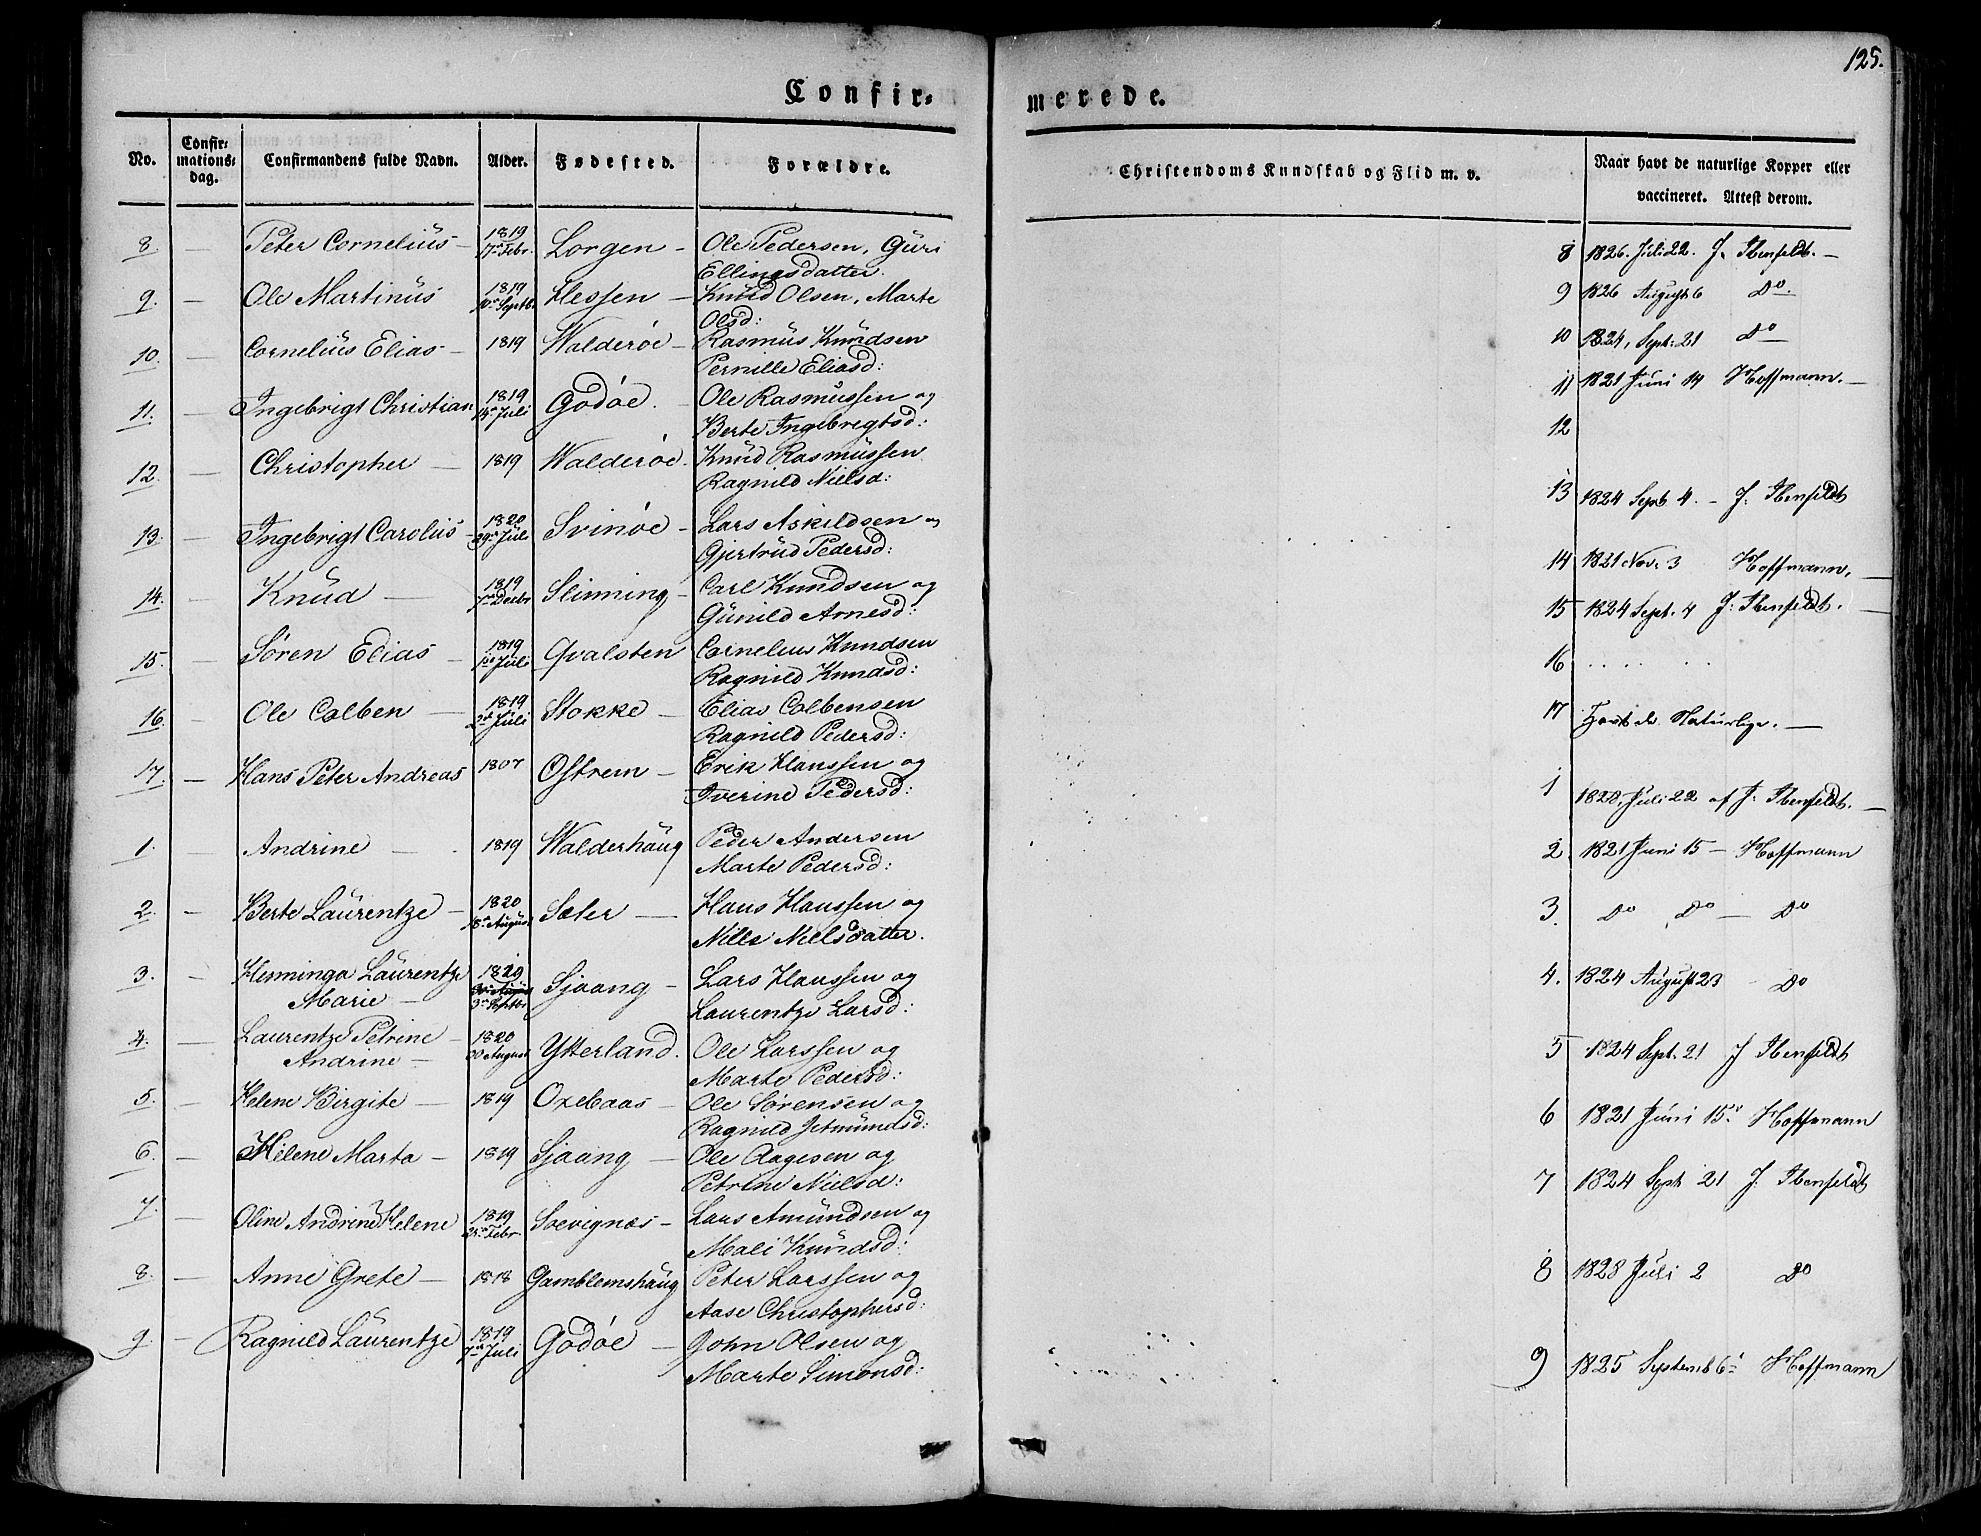 125.
Confir-
merede.
No.
Confir-
mations-
dag.
Confirmandens fulde Navn.
Alder.
Fødested.
Forældre.
Christendoms Kundskab og Flid m. v.
Naar havt de naturlige Kopper eller
vaccineret. Attest derom.
8. — Peter Cornelius — 1819 17de Febr. Lorgen — Ole Pedersen, Guri
Ellingsdatter.
9. — Ole Martinus 1819 10de Septbr. Hessen — Knud Olsen, Marte
Olsd:
10. — Cornelius Elias — 1819 Walderøe — Rasmus Knudsen
Pernille Eliasd:
11. — Ingebrigt Christian 1819 14de Juli Godøe. — Ole Rasmussen og
Berte Ingebrigtsd:
12. — Christopher — 1819 Walderøe. Knud Rasmussen
Ragnild Nielsd:
13. — Ingebrigt Carolus — 1820 29de Juli Svinøe — Lars Askildsen og
Gjertrud Pedersd:
14. — Knud — 1819 7de Decbr Slinning — Carl Knudsen og
Gunild Arnesd:
15. — Søren Elias — 1819 Juli Qvalsten Cornelius Knudsen
Ragnild Knudsd:
16. — Ole Colben — 1819 2de Juli Stokke — Elias Colbensen
Ragnild Pedersd:
17. — Hans Peter Andreas 1807 Ostrem — Erik Hanssen og
Iverine Pedersd:
1. — Andrine — 1819 Walderhaug Peder Andersen
Marte Pedersd:
2. — Berte Laurentze — 1820 18de August Sæter — Hans Hanssen og
Nille Nielsdatter.
3. — Hemminga Laurentze 1820 Sjaang — Lars Hanssen og
Marie — 3de Septbr. Laurentze Larsd:
4. — Laurentze Petrine — 1820 Ytterland. Ole Larssen og
Andrine — 30 August Marte Pedersd:
5. — Helene Birgite — 1819 Oxebaas — Ole Sørensen og
Ragnild Jetmundsd:
6. — Helene Marta — 1819 Sjaang — Ole Aagesen og
Petrine Nielsd:
7. — Oline Andrine Helene 1819 Febr. Soevignæs — Lars Amundsen og
Mali Knudsd:
8. — Anne Grete — 1818 Gamblemshaug Peter Larssen og
Aase Christophersd:
9. — Ragnild Laurentze 1819 7de Juli Godøe — John Olsen og
Marte Simonsd:
8 1826. Juli 22. J. Ibenfeldt. —
9 1826 August 6 Do.
10 1824, Sept: 21 Do
11 1821 Juni 14 Hoffmann. —
12
13 1824 Sept 4. — J: Ibenfeldt
14 1821 Nov: 3 Hoffmann, —
15 1824 Sept. 4 J: Ibenfeldt. —
16 . . . . . .
17 Havt de Naturlige. —
1 1828, Juli 22 af J: Ibenfeldt. —
2 1821 Juni 15 — Hoffmann
3 Do Do — Do
4. 1824 August 23 Do
5 1824 Sept. 21 J Ibenfeldt
6 1821 Juni 15. Hoffmann
7 1824 Sept 21 J: Ibenfeldt
8 1828 Juli 2 Do
9 1825 Septemb 6 Hoffmann